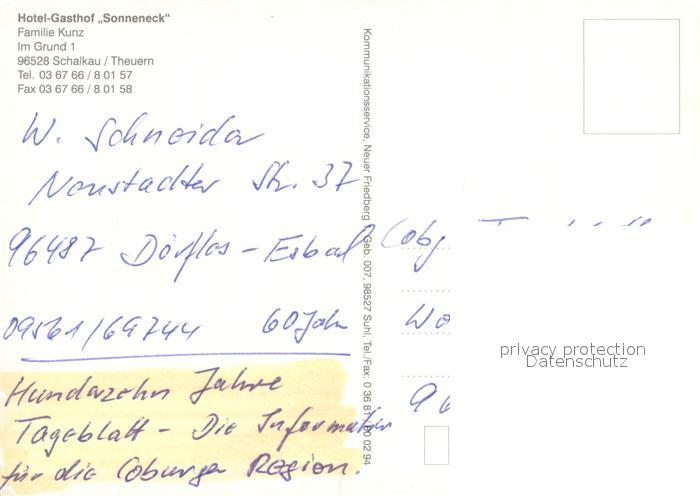 Hotel-Gasthof „Sonneneck“
Familie Kunz
Im Grund 1
96528 Schalkau / Theuern
Tel. 03 67 66 / 8 01 57
Fax 03 67 66 / 8 01 58
W. Schneider
Neustadter Str. 37
96487 Dörfles - Esbach
09561/69744 60 Jahre
Hundertzehn Jahre
Tageblatt - Die Information
für die Coburger Region.
Kommunikationsservice, Neuer Friedberg
Geb. 007, 98527 Suhl, Tel./Fax: 0 36 81
00 02 94
Cobg.
Wo
96
privacy protection
Datenschutz